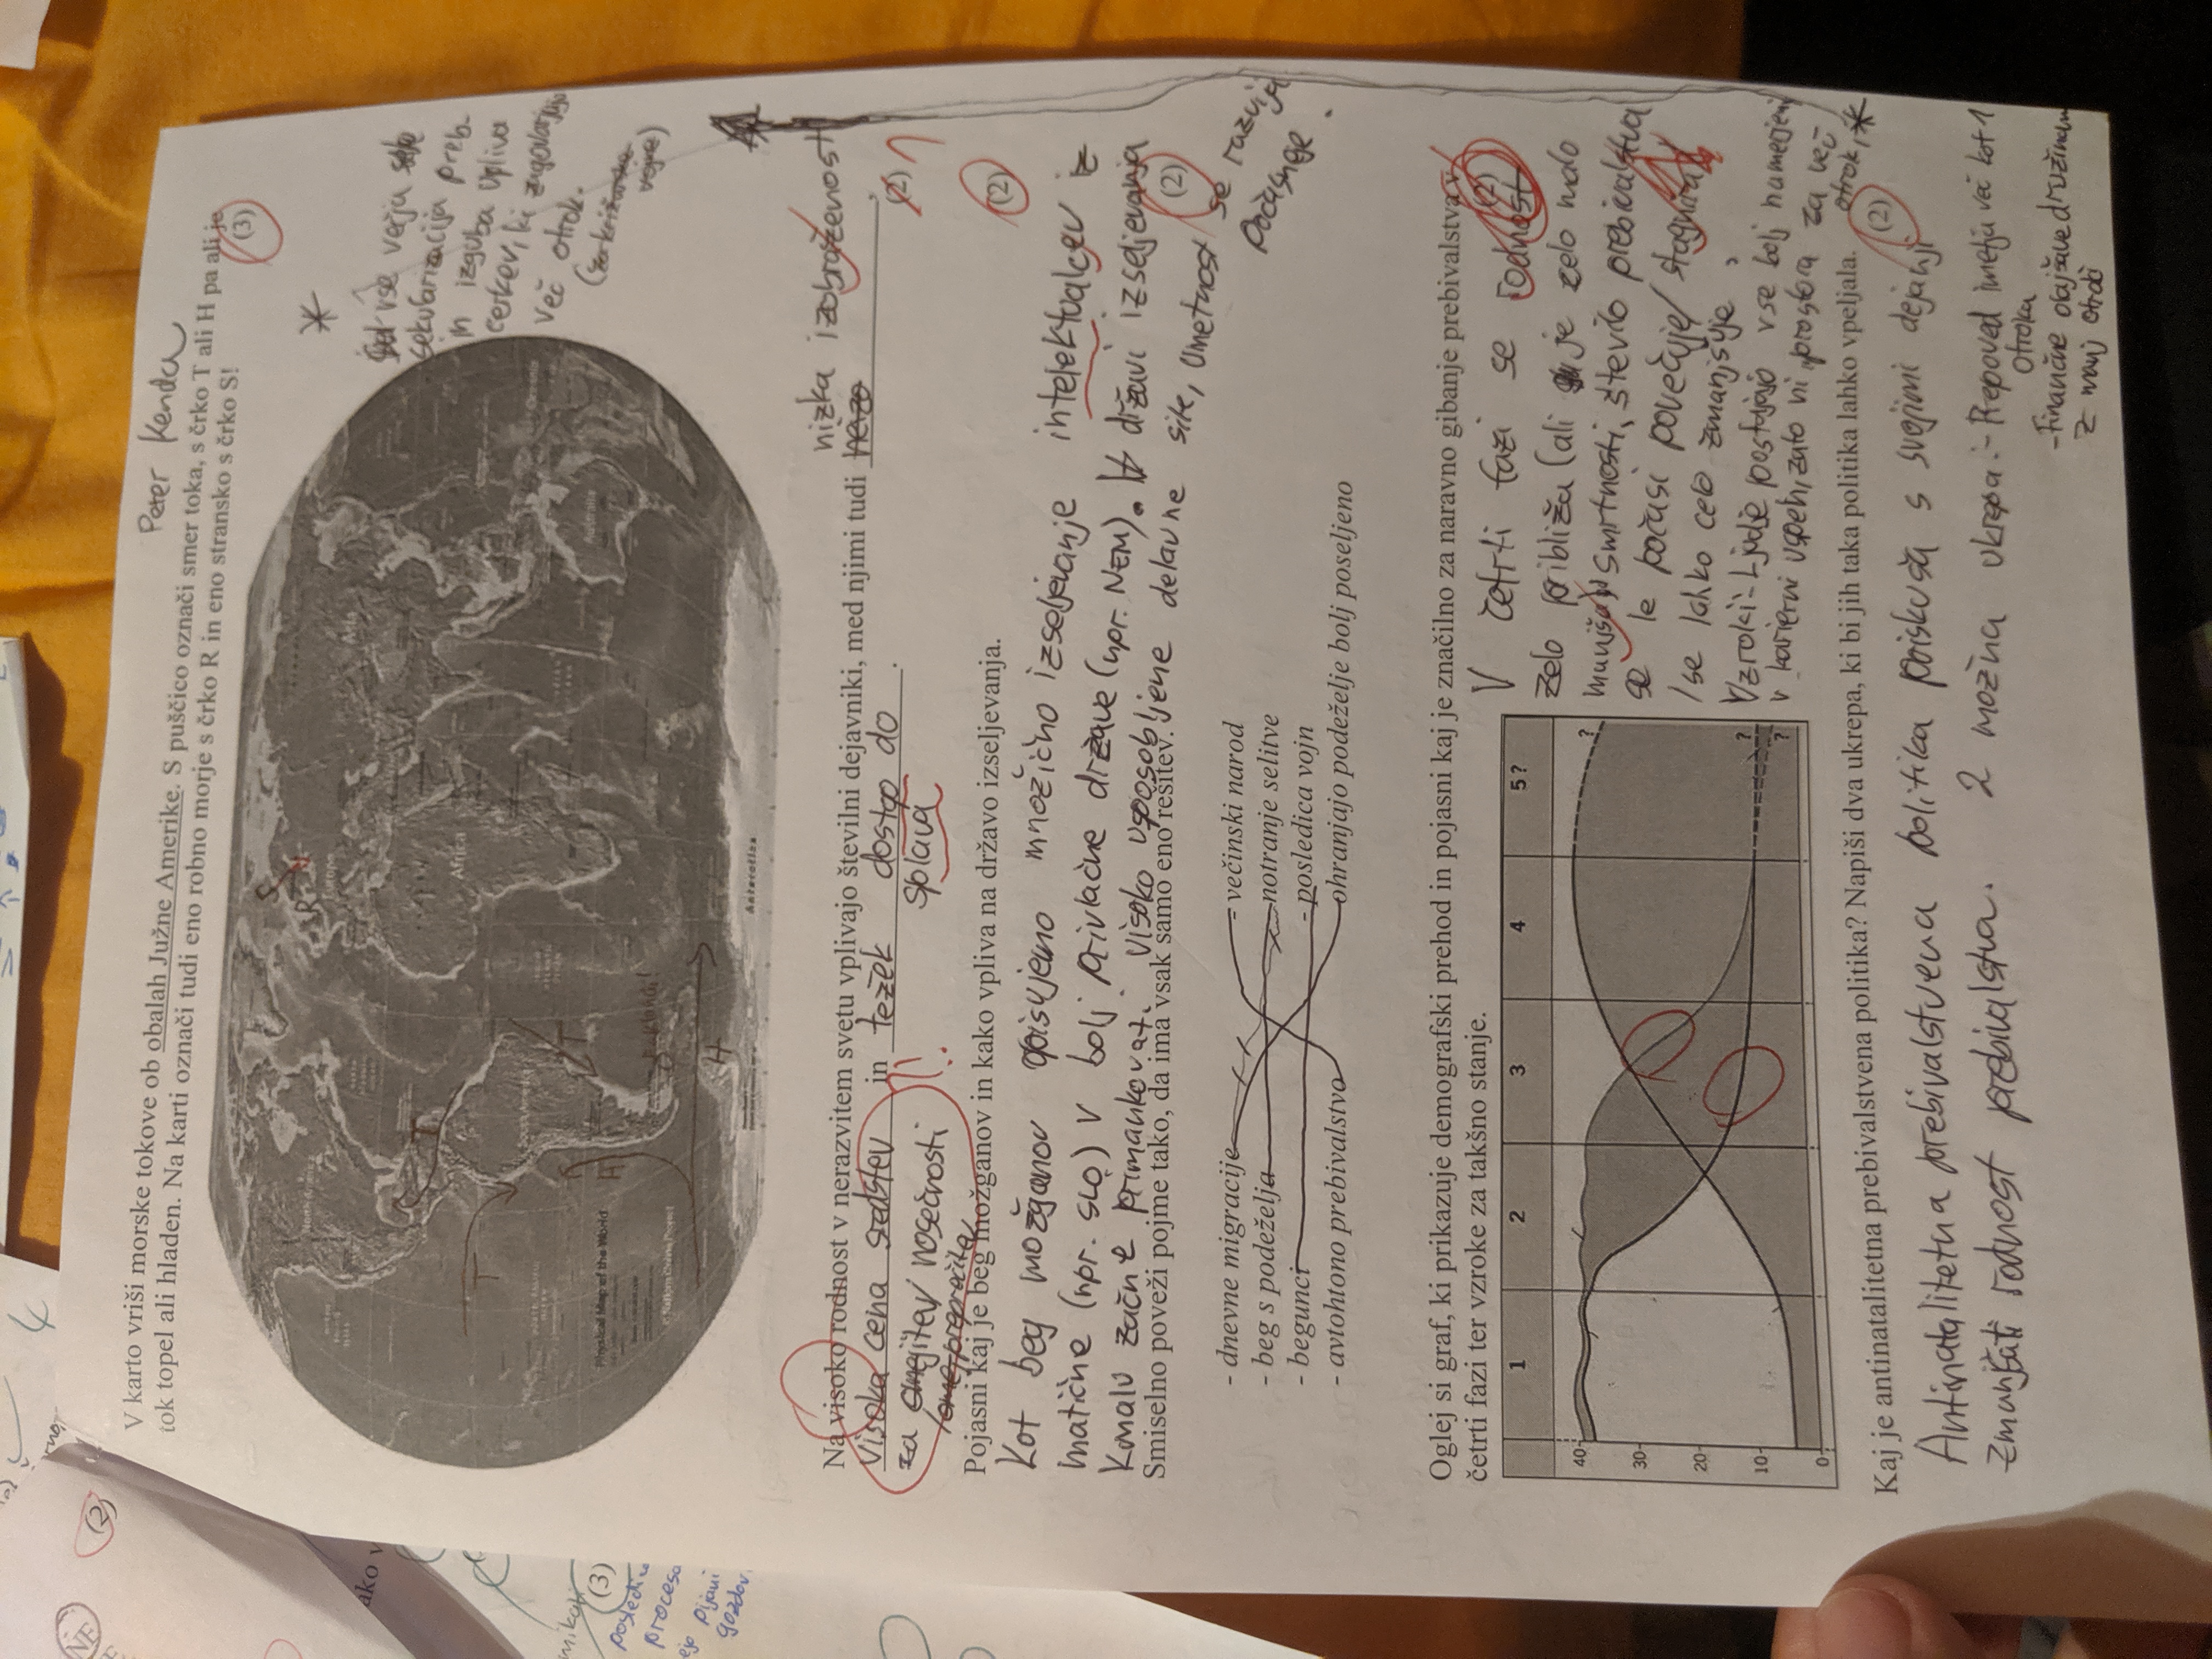 4
NE
(2)
Peter Kenda
V karto vriši morske tokove ob obalah Južne Amerike. S puščico označi smer toka, s črko T ali H pa ali je
tok topel ali hladen. Na karti označi tudi eno robno morje s črko R in eno stransko s črko S!
(3)
S
R
North America
Europe
Asia
Africa
T
T
South America
T
H
Oceania
Australia
Physical Map of the World
© Nations Online Project
H
Antarctica
*
vse večja
sekularizacija preb-
in izguba vpliva
cerkev, ki zagovarjajo
več otrok.
(za križarske
vojne)
ako v
(3)
posledica
procesa
pijani
gozdov
Na visoko rodnost v nerazvitem svetu vplivajo številni dejavniki, med njimi tudi nizka izobraženost,
visoka cena sredstev in težek dostop do.
za omejitev nosečnosti splava
(2) 1
!.
Pojasni kaj je beg možganov in kako vpliva na državo izseljevanja.
(2)
Kot beg možganov opisujemo množično izseljevanje intelektualcev iz
matične (npr. SLO) v bolj privlačne države (npr. NEM). V državi izseljevanja
kmalu začne primankovati visoko usposobljene delavne sile, umetnost se razvija
počasneje.
Smiselno poveži pojme tako, da ima vsak samo eno rešitev.
(2)
- dnevne migracije - večinski narod
- beg s podeželja -notranje selitve
- begunci - posledica vojn
- avtohtono prebivalstvo -ohranjajo podeželje bolj poseljeno
Oglej si graf, ki prikazuje demografski prehod in pojasni kaj je značilno za naravno gibanje prebivalstva v
četrti fazi ter vzroke za takšno stanje.
(2)
1 2 3 4 5?
40
30
20
10
0
?
?
?
V četrti fazi se rodnost
zelo približa (ali je zelo malo
manjša) smrtnosti, število prebivalstva
se le počasi povečuje/ stagnira
/se lahko celo zmanjšuje,
Vzroki:- Ljudje postajajo vse bolj namerjeni
v karierni uspeh, zato ni prostora za več
otrok, *
Kaj je antinatalitetna prebivalstvena politika? Napiši dva ukrepa, ki bi jih taka politika lahko vpeljala.
(2)
Antinatalitetna prebivalstvena politika poiskuša s svojimi dejanji
zmanjšati rodnost prebivalstva. 2 možna ukrepa:- Prepoved imetja več kot 1
otroka
-Finančne olajšave družinam
z manj otroki